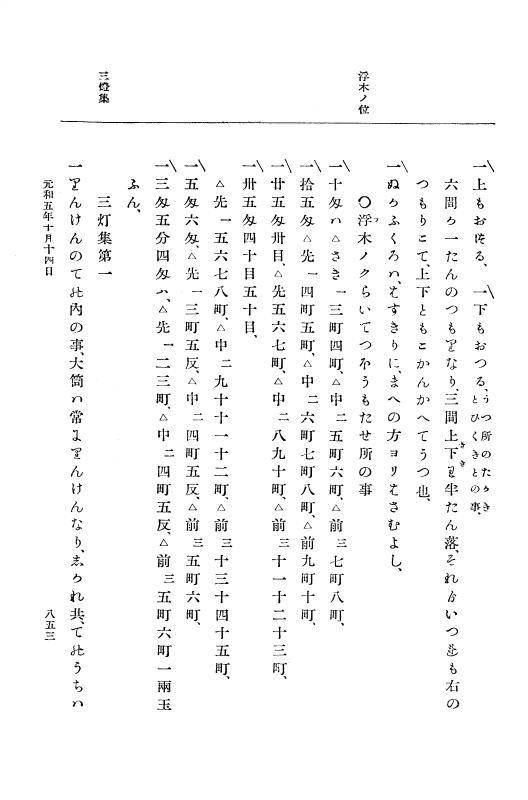 浮木ノ位
三燈集
一上もおはる、一下もおつる、うつ所のたかき
とひくきとの事、
六間か一たんのつもりなり、三間上下ハ半たん落、それゟいつれも右の
つもりこて、上下ともこかんかへてうつ也、
一ぬのふくろハ、はすきりに、まへの方ヨリはさむよし、
〇浮木ノクらいてつほうもたせ所の事
一十匁ハ△さき一三町四町、△中二五町六町、△前三七町八町、
一拾五匁、△先一四町五町、△中二六町七町八町、△前九町十町、
一廿五匁卅目、△先五六七町、△中二八九十町、△前三十一十二十三町、
一卅五匁四十目五十目、
△先一五六七八町、△中二九十十一十二町、△前三十三十四十五町、
一五匁六匁、△先一三町五反、△中二四町五反、△前三五町六町、
一三匁五分四匁ハ、△先一二三町、△中二四町五反、△前三五町六町一兩玉
ふん、
三灯集第一
一りんけんのて此內の事、大筒ハ常よりんけんなり、志かれ共、て此うちハ
元和五年十月十四日
八五三